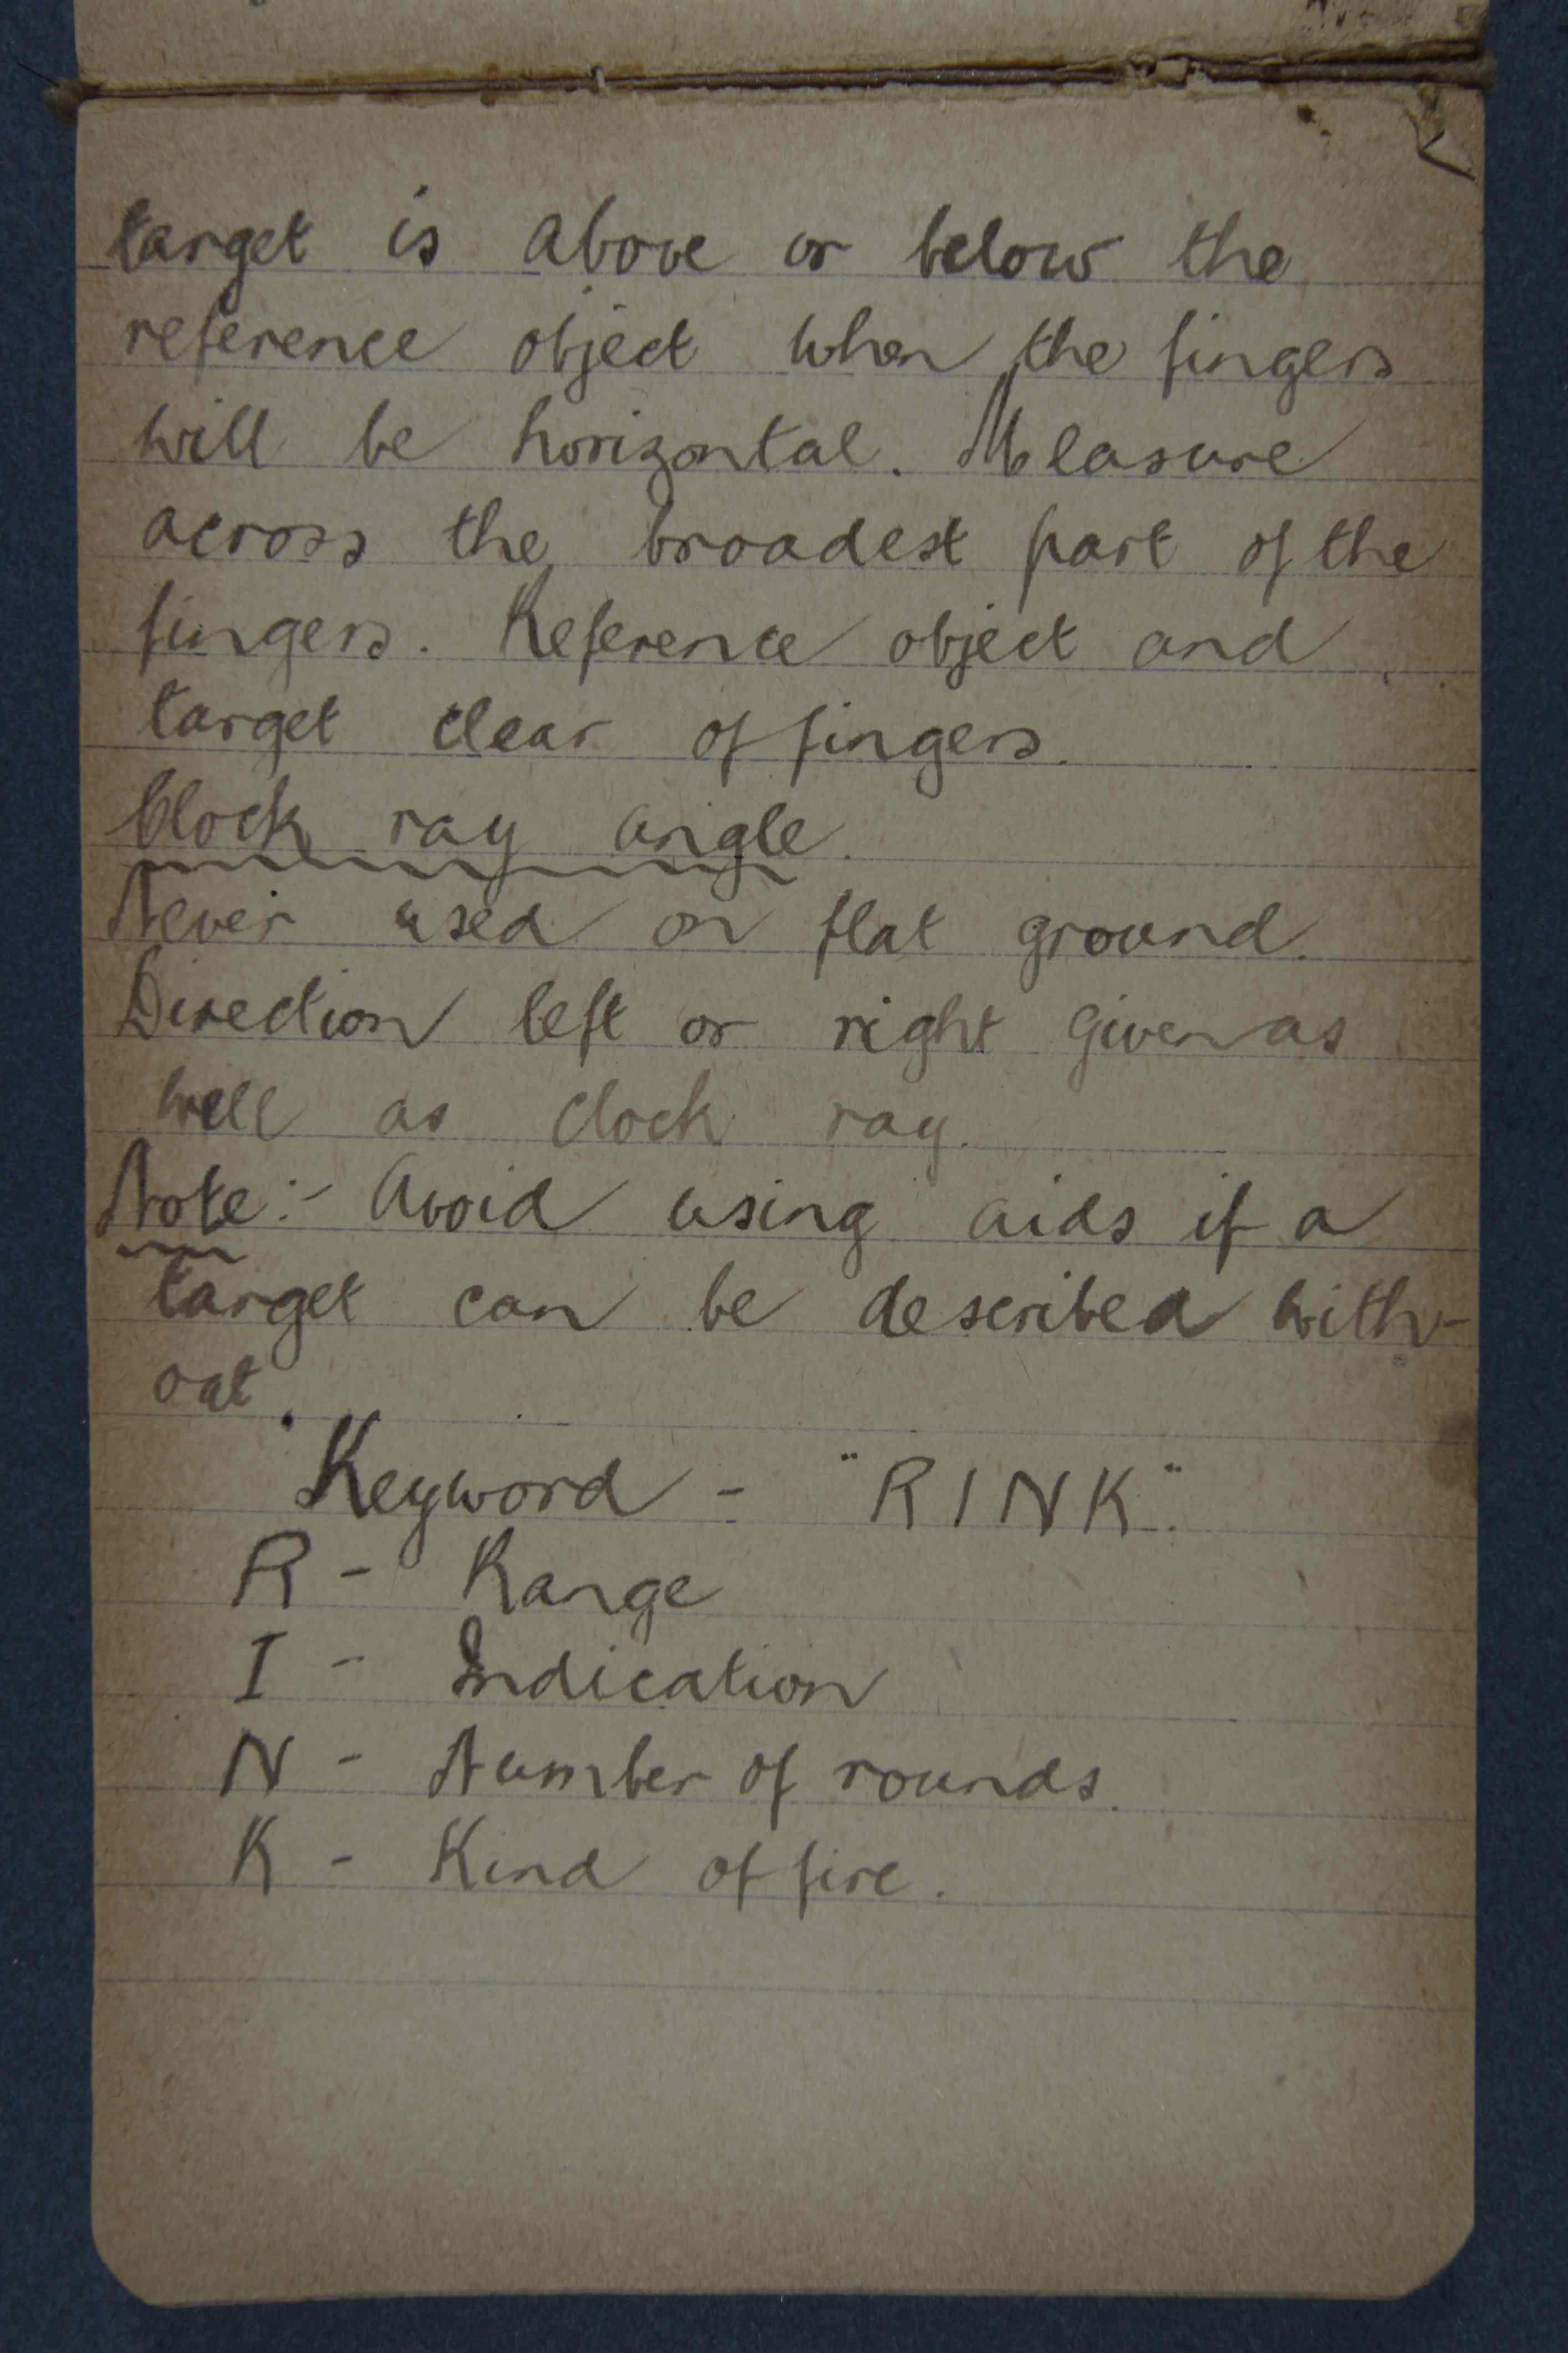 target is above or below the
reference object when the fingers
will be horizontal. Measure
across the broadest part of the
fingers. Reference object and
target clear of fingers.
Clock ray angle.
Never used on flat ground.
Direction left or right given as
well as clock ray.
Note:- Avoid using aids if a
target can be described with-
out.
Keyword - "RINK".
R - Range
I - Indication
N - Number of rounds.
K - Kind of fire.